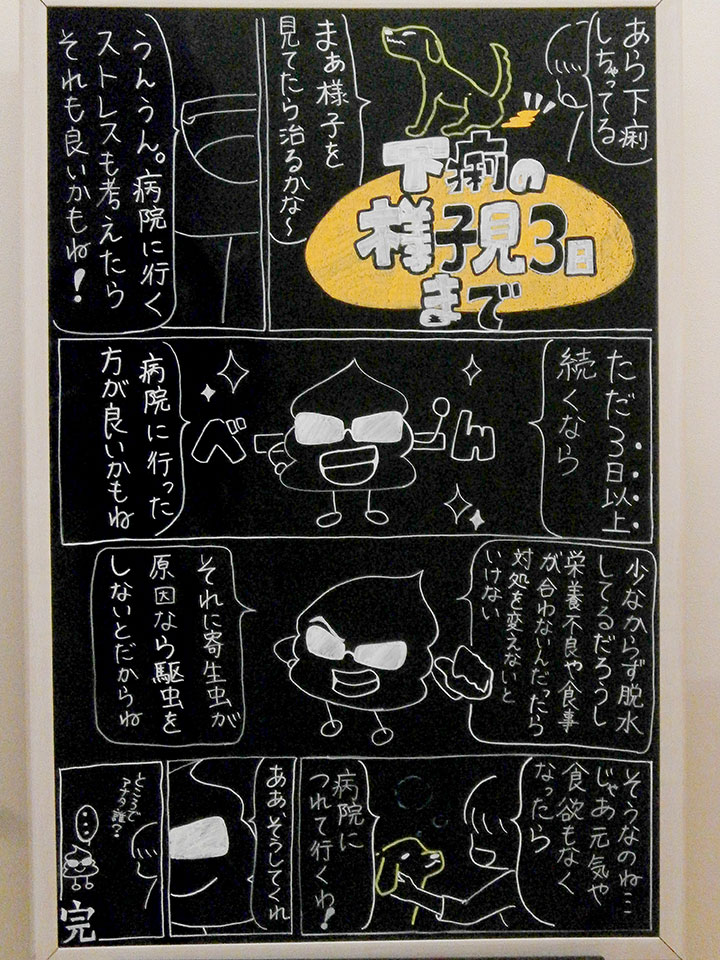 あら下痢
しちゃってる
まぁ様子を
見てたら治るかな〜
下痢の
様子見3日
まで
うんうん。病院に行く
ストレスも考えたら
それも良いかもね!
ただ3日以上
続くなら
べん
病院に行った
方が良いかもね
少なからず脱水
してるだろうし
栄養不良や食事
が合わないんだったら
対処を変えないと
いけない
それに寄生虫が
原因なら駆虫を
しないとだからね
そうなのね…
じゃあ元気や
食欲もなく
なったら
病院に
つれて行くわ!
ああ、そうしてくれ
ところで
アナタ誰?
…
完